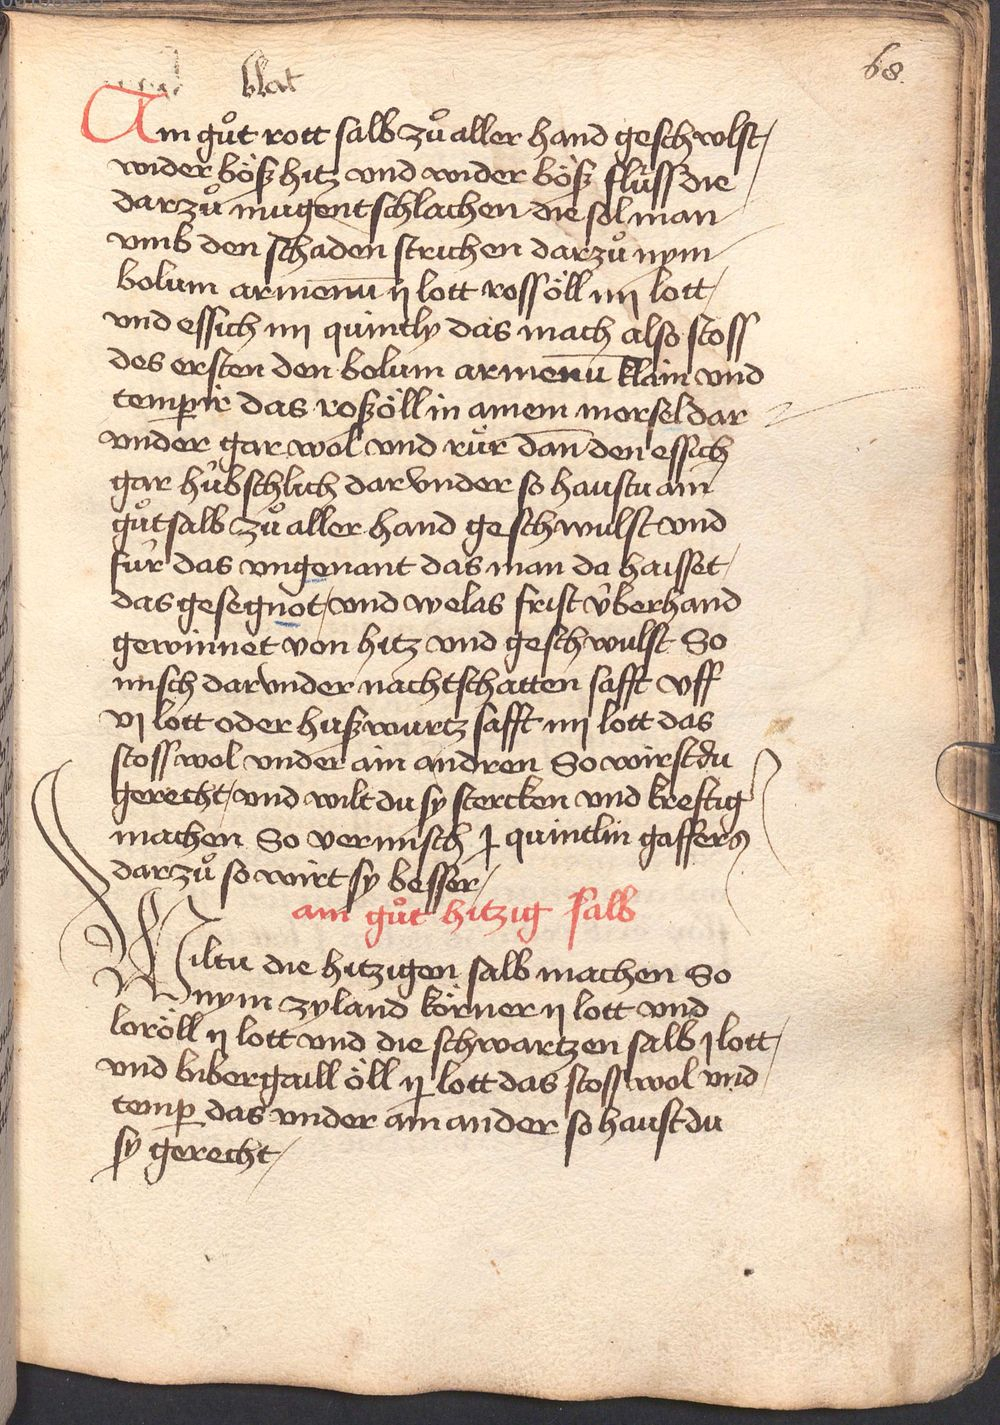 blat
68.
Ain gůt rott salb zů aller hand geschwlst /
wider böß hitz vnd wider böß flüss die
darzů mugent schlachen die sol man
vmb den schaden strichen darzů nym
bolum armenū ij lott rossöll iiij lott /
vnd essich iiij quintly das mach also stoss
des ersten den bolum armenū klain vnd
temperir das roßöll in ainem morsel dar
vnder gar wol vnd rür dan̄ den essich
gar hübschlich dar vnder so haustu ain
gůt salb zů aller hand geschwulst vnd
für das vngenant das man da haisset /
das gesegnot / vnd welas frist vberhand
gewinnet von hitz vnd geschwulst So
misch darvnder nachtschatten safft vff
vj lott oder hußwurtz safft iiij lott das
stoss wol vnder ain andren So wirst du
gerecht / vnd wilt du sy stercken vnd kreftig
machen So vermisch j quintlin gaffers
darzů so wirt sy besser /
ain gůt hitzig salb
Wiltu die hitzigen salb machen So
nym zyland körner ij lott vnd
loröll ij lott vnd die schwartzen salb j lott /
vnd bibergaill öll ij lott das stoss wol vnd
temp̲ das vnder ain ander so haust du
sy gerecht /